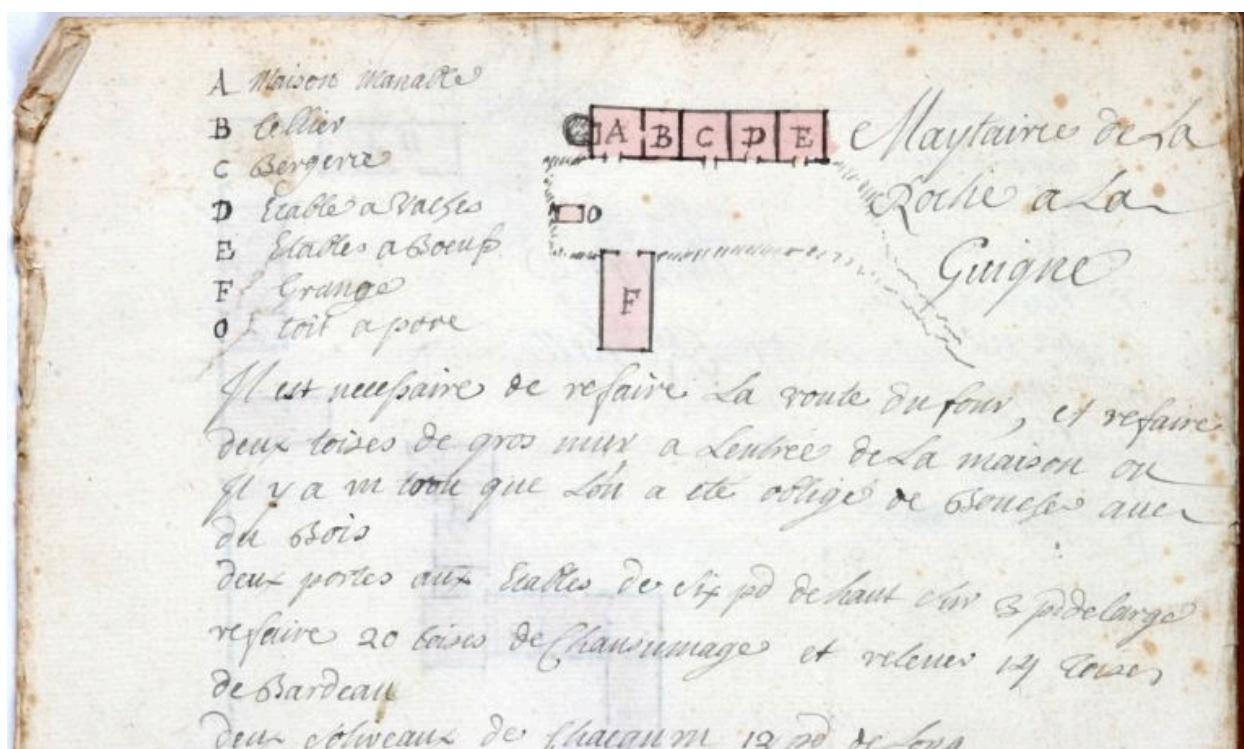 A Maison Manable
B Cellier
C Bergerie
D Etable a Vaches
E Etables a Boeufs
F Grange
O toit a porc
A B C D E
O
F
Maytairie de La
Roche a La
Guigne
Il est necessaire de refaire La voute du four, et refaire
deux toises de gros mur a Lentrée de La maison ou
Il y a un trou que L'on a eté obligé de Boucher avec
du Bois
deux portes aux Etables de six pd de haut sur 3 pd de large
refaire 20 toises de Chaumage et relever 14 toises
de Bardeau
deux soliveaux de Chacqu'un 12 pd de Long